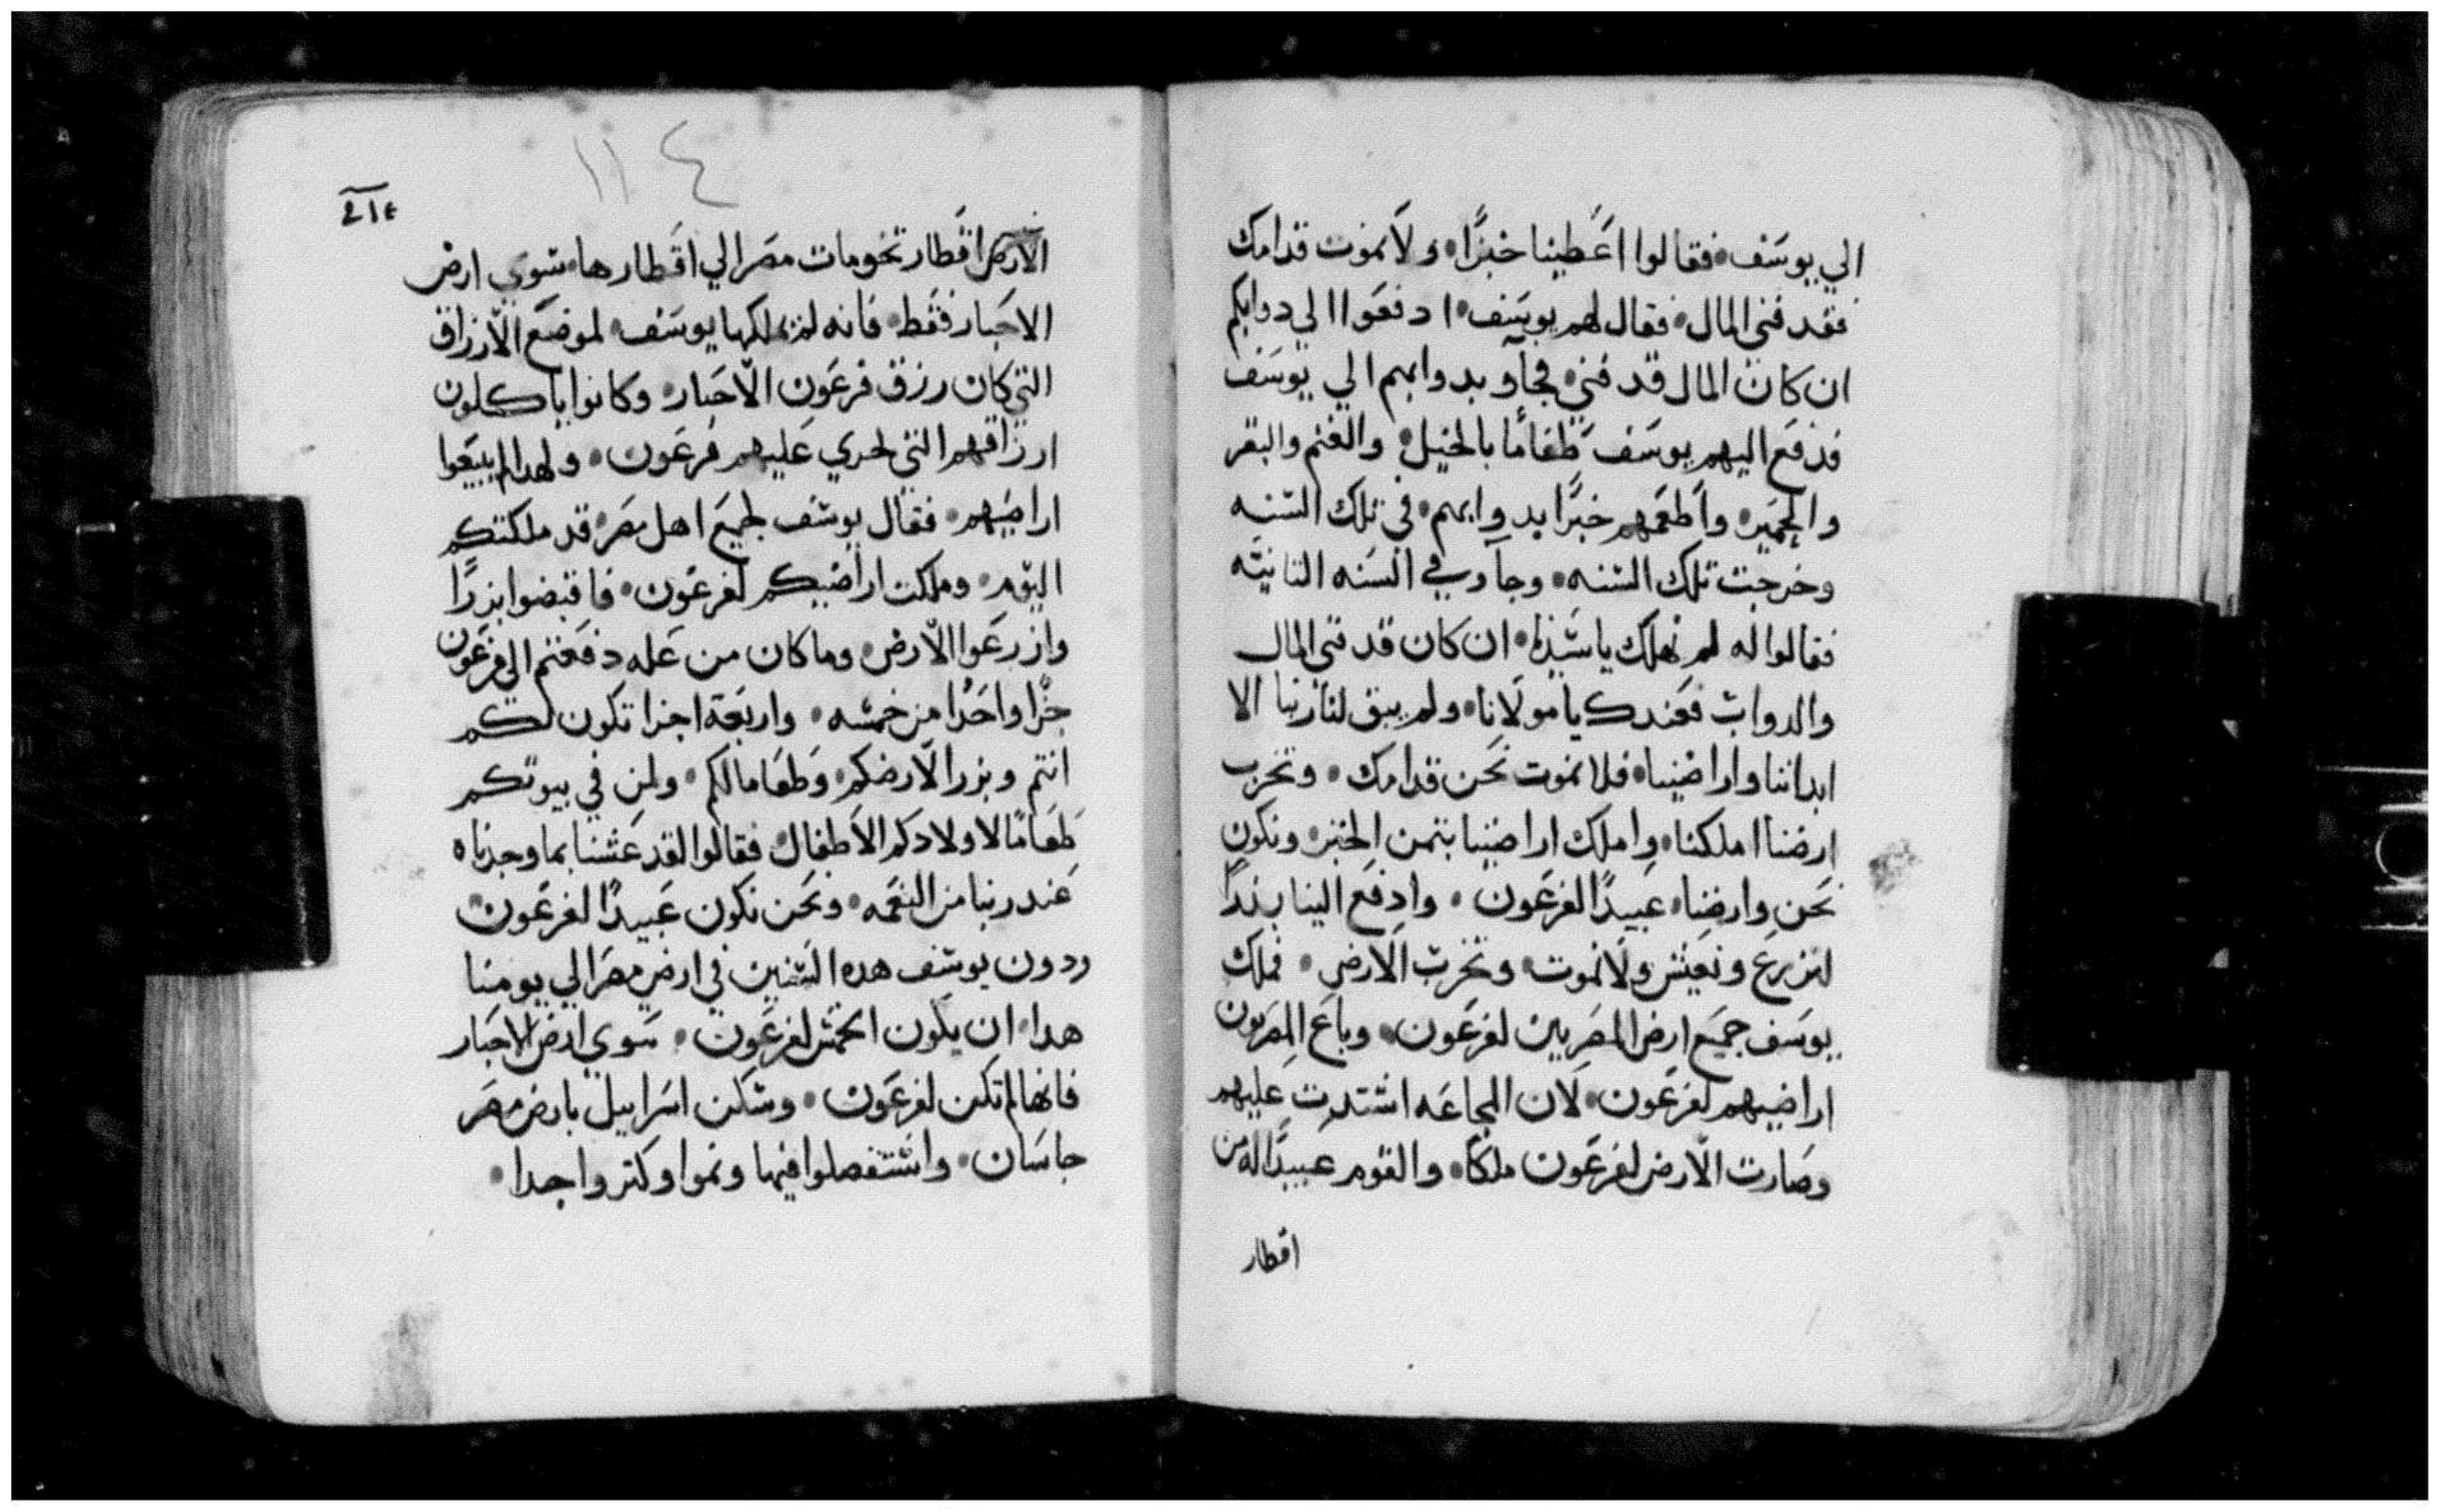 الي يوسف فقالوا اعطينا خبزا ولا نموت قدامك
فقد فني المال فقال لهم يوسف ادفعوا الي دوابكم
ان كان المال قد فني فجآو بدوابهم الي يوسف
فدفع اليهم يوسف طعاما بالخيل والغنم والبقر
والحمير واطعمهم خبزا بدوابهم في تلك السنه
وخرجت تلك السنه وجآو في السنه التانيه
فقالوا له لم نهلك يا سيدنا ان كان قد فني المال
والدواب فعندك يا مولانا ولم يبق لنا ربنا الا
ابداننا واراضينا فلا نموت نحن قدامك وتخرب
ارضنا املكنا واملك اراضينا بتمن الخبز ونكون
نحن وارضنا عبيدا لفرعون وادفع الينا بذرا
لنزرع ونعيش ولا نموت وتخرب الارض فملك
يوسف جميع ارض المصريين لفرعون وباع المصريون
اراضيهم لفرعون لان المجاعه اشتدت عليهم
وصارت الارض لفرعون ملكا والقوم عبيدا له من
اقطار
١١٤
الارض اقطار تخومات مصر الي اقطارها سوي ارض
الاحبار فقط فانه لم يملكها يوسف لموضع الارزاق
التي كان رزق فرعون الاحبار وكانوا ياكلون
ارزاقهم التي لجري عليهم فرعون ولهدا لم يبيعوا
اراضيهم فقال يوسف لجميع اهل مصر قد ملكتكم
اليوم وملكت اراضيكم لفرعون فاقبضوا بزرا
وازرعوا الارض وما كان من غله دفعتم الي فرعون
جزا واحدا من خمسه واربعة اجزا تكون لكم
انتم وبزرا لارضكم وطعاما لكم ولمن في بيوتكم
طعاما لاولادكم الاطفال فقالوا لقد عشنا بما وجدناه
عند ربنا من النعمه ونحن نكون عبيدا لفرعون
ودون يوسف هده السنين في ارض مصر الي يومنا
هدا ان يكون الخمس لفرعون سوي ارض الاحبار
فانها لم تكن لفرعون وسكن اسراييل بارض مصر
جاسان واستفصلوا فيها ونموا وكتروا جدا